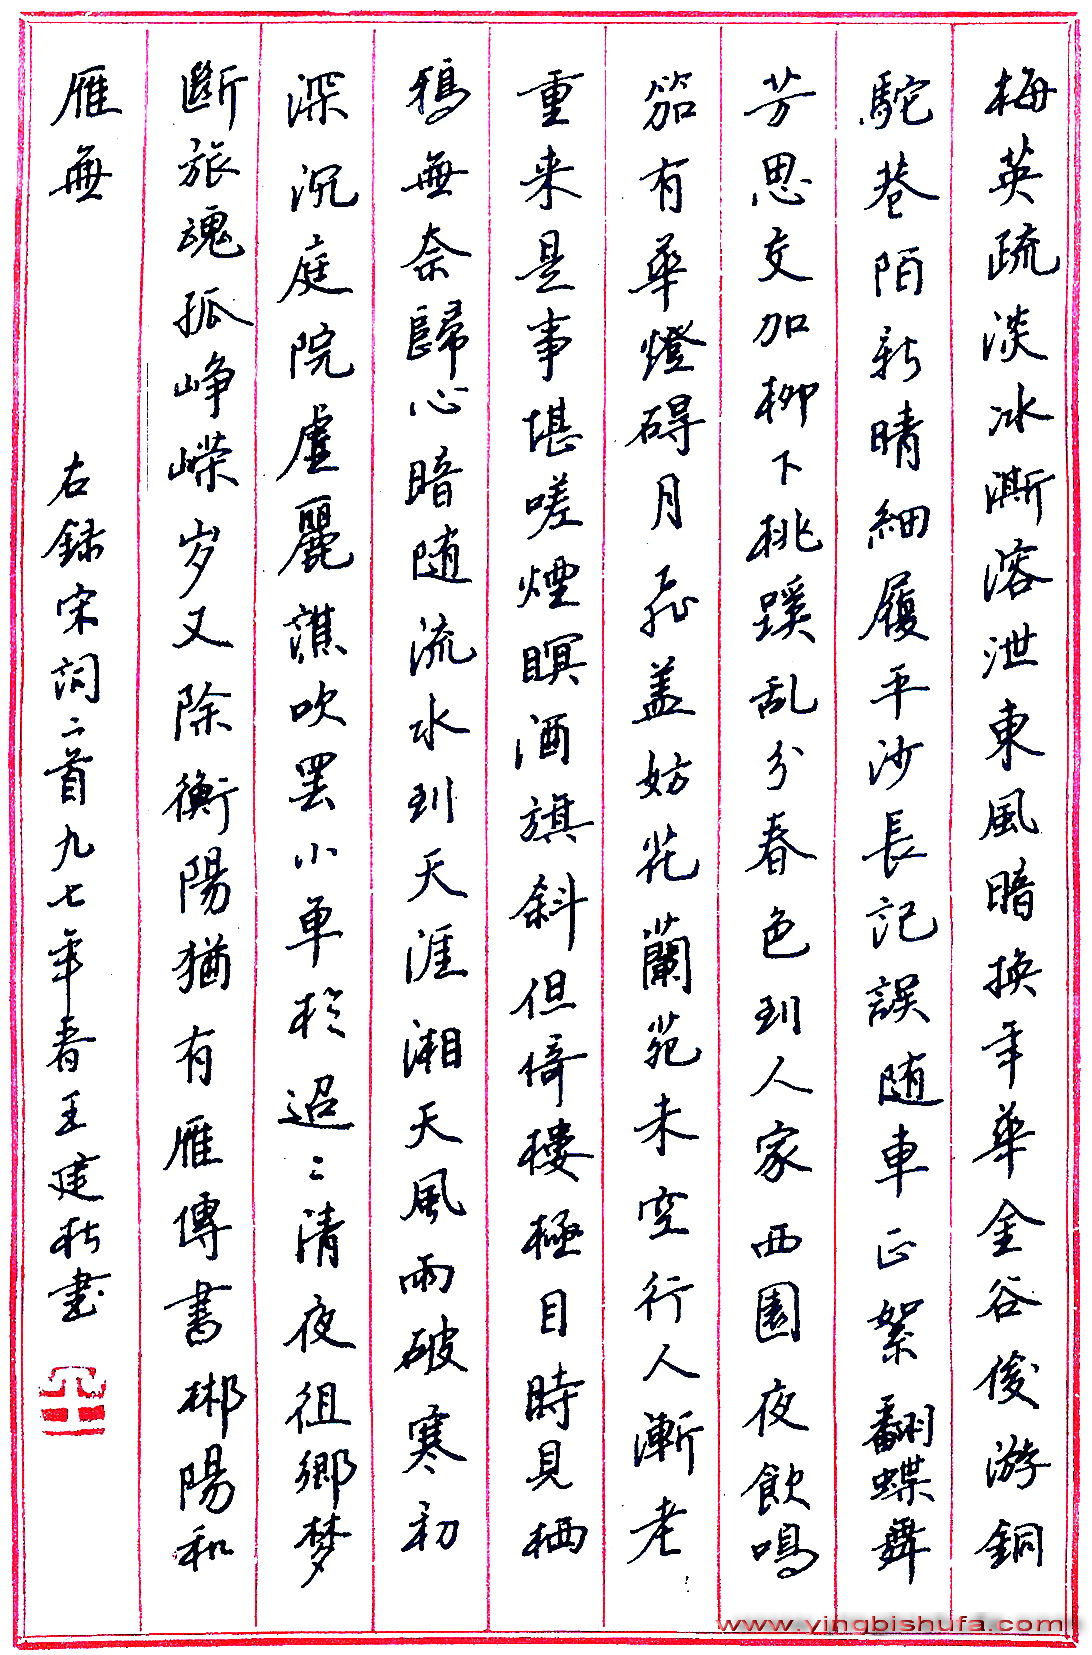 梅英疏淡冰澌溶泄東風暗换年華金谷俊游銅
駝巷陌新晴細履平沙長記誤随車正絮翻蝶舞
芳思交加柳下桃蹊乱分春色到人家西園夜飲鳴
笳有華燈碍月飛蓋妨花蘭苑未空行人漸老
重来是事堪嗟煙暝酒旗斜但倚樓極目時見栖
鴉無奈歸心暗随流水到天涯湘天風雨破寒初
深沉庭院虚麗譙吹罢小单于迢〻清夜徂鄉梦
斷旅魂孤峥嵘岁又除衡陽猶有雁傳書郴陽和
雁無
右録宋詞二首九七年春王建 書
www.yingbishufa.com